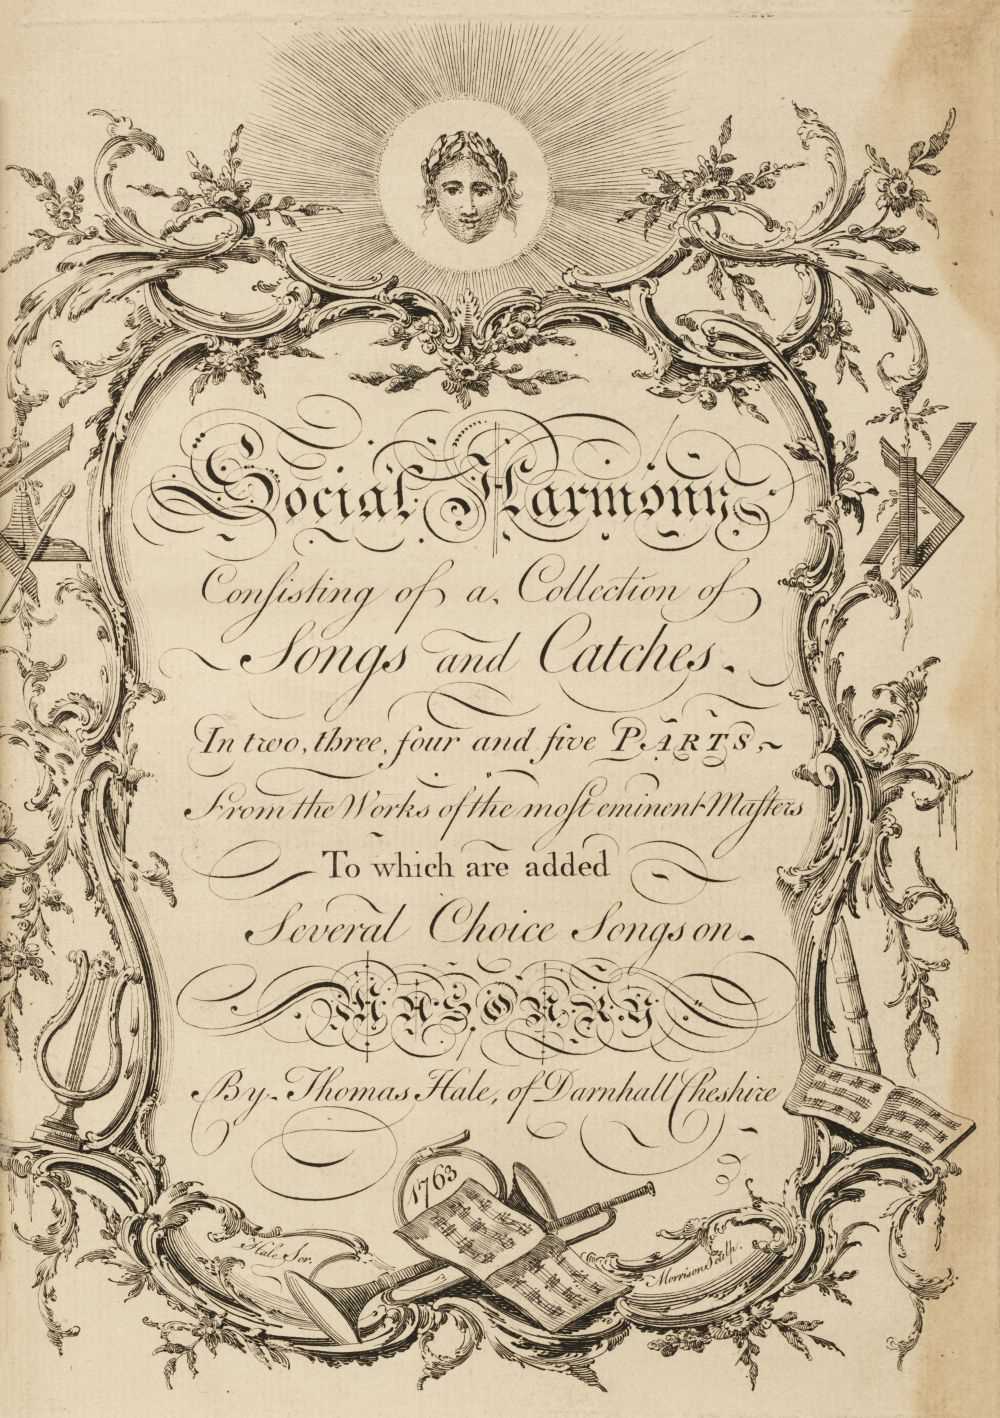 Social Harmony
Consiſting of a Collection of
Songs and Catches.
In two, three, four and five PARTS,
From the Works of the moſt eminent Maſters
To which are added
Several Choice Songs on
MASONRY
By Thomas Hale, of Darnhall Cheshire
1763
Hale Scr.
Morrison Sculp.